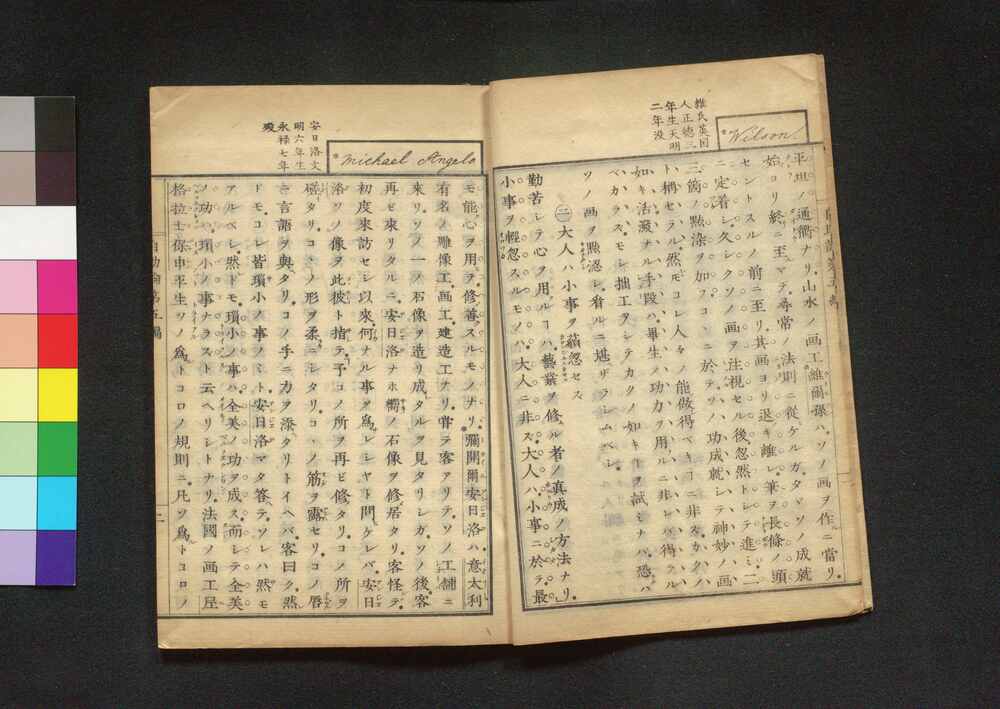 維氏英国
人正徳三
年生天明
二年没
Wilson.
平坦ノ通衢ナリ。山水ノ画工維爾孫ハ、ソノ画ヲ作ルニ當リ。
始ヨリ終ニ至ルマデ、尋常ノ法則ニ從ヒケルガ、タマヽソノ成就
セントスルノ前ニ至リ、其画ヨリ退キ離レ、筆ヲ長條ノ頭
ニ定着シ、久シクソノ画ヲ注視セル後、忽然トシテ進ミ、二
三箇ノ黙染ヲ加フ。コヽニ於テ、ソノ功成就シテ神妙ノ画
ト稱セラル。然モコレ人々ノ能做得ベキコニ非ズ。カクノ
如キ活潑ナル手段ハ、畢生ノ功力ヲ用ルニ非レバ得ル
ベカラズ。モシ拙工ヲシテカクノ如キヿヲ試ミナバ、恐ハ
ソノ画ヲ黙涴シ、看ルニ堪ザラシムベシ。
㊁大人ハ小事ヲ藐忽セズ
勤苦シテ心ヲ用ルコハ、藝業ヲ修ル者ノ真成ノ方法ナリ。
小事ヲ輕忽スルモノハ、大人ニ非ズ。大人ハ、小事ニ於テ最
安日洛文
明六年生
永禄七年
歿
Michael Angelo
モ能心ヲ用ヲ修善スルモノナリ。彌開爾安日洛ハ意太利
有名ノ雕像工、画工、建造工ナリ。甞テ客アリテ、ソノ工舗ニ
來リ、ソノ一ノ石像ヲ造リ成タルヲ見タリシガ、ソノ後、客
再ビ來リタルニ、安日洛ナホ櫩ノ石像ヲ修居タリ。客怪テ、
初度來訪セシ以來、何ナル事ヲ爲レシヤト問ケレバ、安日
洛ソノ像ヲ此彼ト指テ、予コノ所ヲ再ビ修タリ。コノ所ヲ
磋タリ。コヽノ形ヲ柔ニシタリ。コヽノ筋ヲ露セリ。コノ唇
ニ言語ヲ與タリ。コノ手ニ力ヲ添タリトイヘバ、客曰ク、然
ドモ、コレ皆瑣小ノ事ノミト。安日洛マタ答テ、ソレハ然モ
アルベシ。然ドモ、瑣小ノ事ハ、全美ノ功ヲ成ス。而シテ全美
ノ功ハ、瑣小ノ事ナラズト云ヘリシトナリ。法國ノ画工尼
格拉士保申平生ソノ爲トコロノ規則ニ、凡ソ爲トコロノ